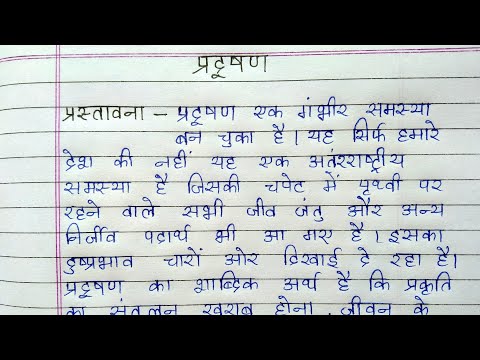 प्रदूषण
प्रस्तावना – प्रदूषण एक गंभीर समस्या
बन चुका है। यह सिर्फ हमारे
देश की नहीं यह एक अतंरराष्ट्रीय
समस्या है जिसकी चपेट में पृथ्वी पर
रहने वाले सभी जीव जंतु और अन्य
निर्जीव पदार्थ भी आ गए है। इसका
दुष्प्रभाव चारों ओर दिखाई दे रहा है।
प्रदूषण का शाब्दिक अर्थ है कि प्रकृति
का संतुलन खराब होना, जीवन के